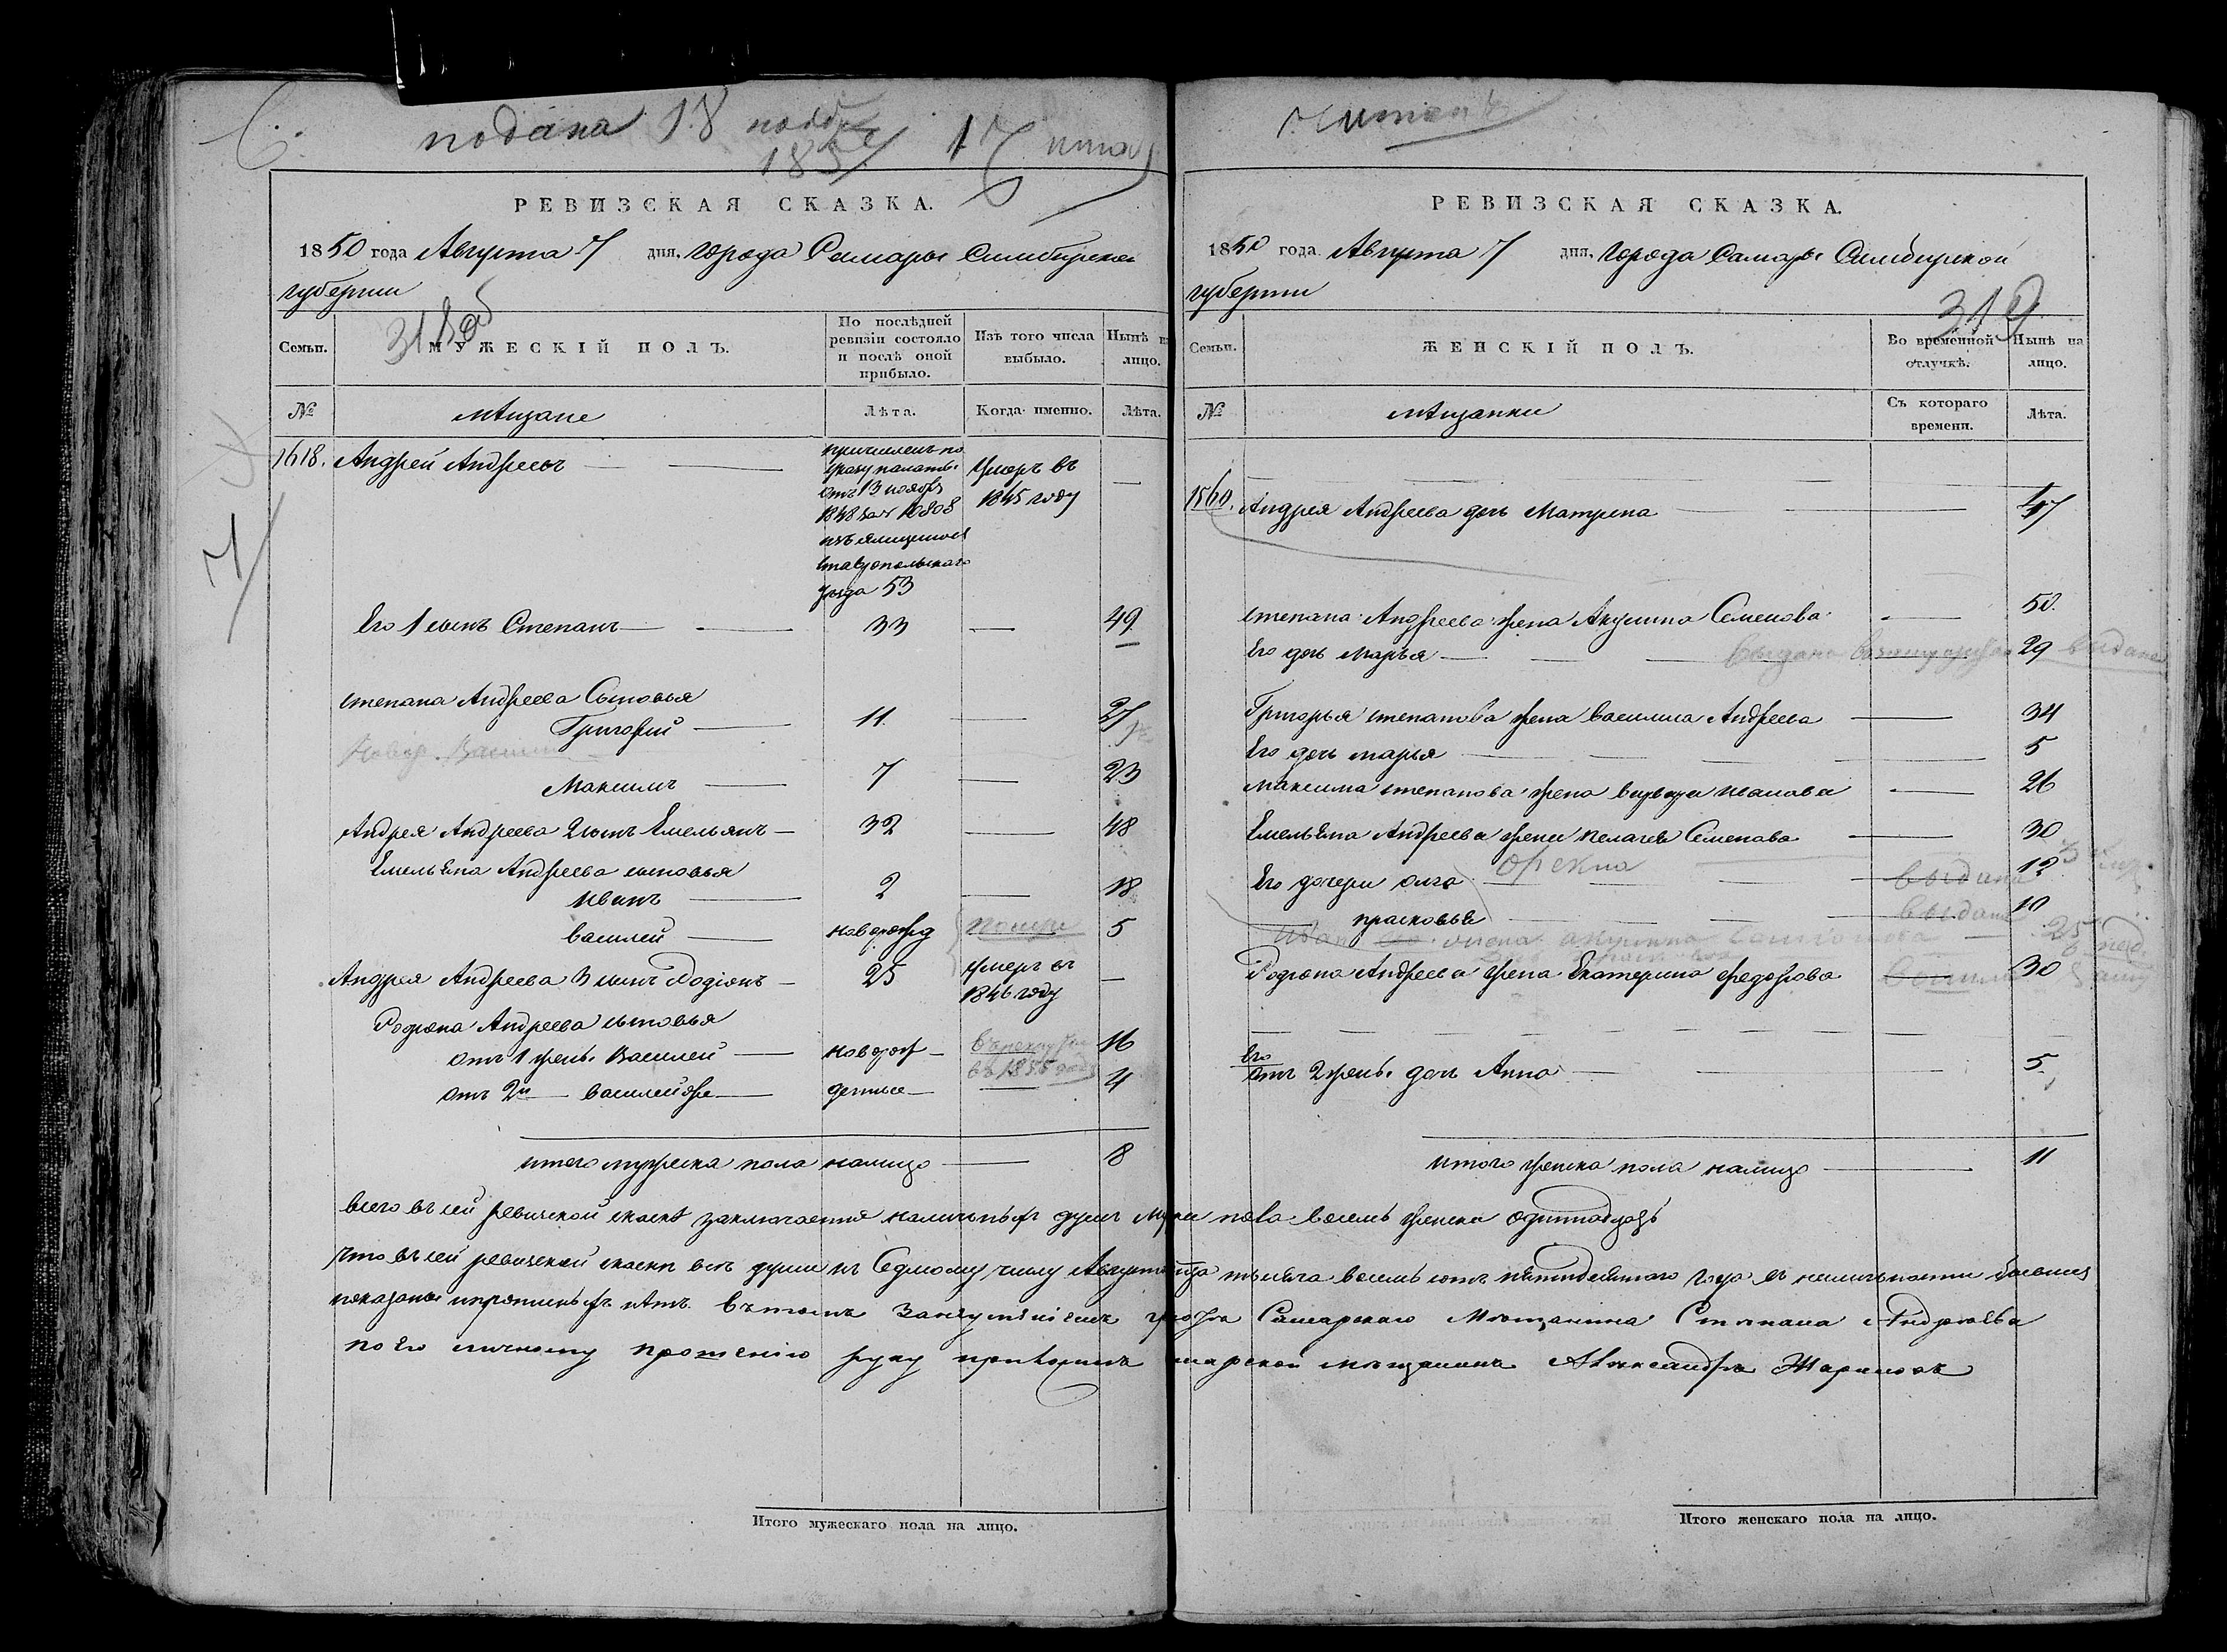 подана 18 нояб
1857
РЕВИЗСКАЯ СКАЗКА.
1850 года Августа 7 дня, города Самары Симбирской
губернии
318 об
Семьи.
МУЖЕСКІЙ ПОЛЪ.
По послѣдней ревизіи состояло и послѣ оной прибыло.
Изъ того числа выбыло.
Нынѣ на лицо.
№
мещане
Лѣта.
Когда именно.
Лѣта.
1618. Андрей Андреевъ
причисленъ по
указу палаты
отъ 13 ноября
1848 за № 10808
изъ ямщиковъ
ставропольскаго
уезда 53
Умеръ въ
1845 году
Его 1 сынъ Степанъ 33 49
степана Андреева Сыновья
Григорей 11 27
Новор. Васил
Максимъ 7 23
Андрея Андреева 2 сынъ Емельянъ 32 48
Емельяна Андреева сыновья
иванъ 2 18
василей новорожд 5
Андрея Андреева 3 сынъ Родіонъ 25 умеръ въ 1846 году
Родіона Андреева сыновья
отъ 1 жены Василей новорож 16
въ 1855 году
отъ 2й василей же 4
итого мужеска пола налицо 8
всего въ сей ревизской сказке заключается наличныхъ душъ
что въ сей ревизской сказки все души къ Седмому числу Августа
показаны
по его личному прошению руку приложилъ
Итого мужескаго пола на лицо.
РЕВИЗСКАЯ СКАЗКА.
1850 года Августа 7 дня, города Самары Симбирской
губернии
319
Семьи.
ЖЕНСКІЙ ПОЛЪ.
Во временной отлучкѣ.
Нынѣ на лицо.
№
мещанки
Съ котораго времени.
Лѣта.
1560. Андрея Андреева дочь Матрена 47
степана Андреева жена Акулина Семенова 50
Его дочь Марья 29 выдана
Григорья степанова жена василиса Андреева 34
Его дочь марья 5
Максима степанова жена варвара иванова 26
Емельяна Андреева жена пелагея Семенова 30
Его дочери олга выдана 12
прасковья выдана 10
Родіона Андреева жена Екатерина федорова 30
Его
отъ 2 жены дочь Анна 5
итого женска пола налицо 11
пола восемь женска одиннадцать
тысяча восемь сотъ пятидесятаго года въ наличьности бывшия
Самарскаго Мещанина Степана Андреева
мещанинъ Александръ Жариновъ
Итого женскаго пола на лицо.